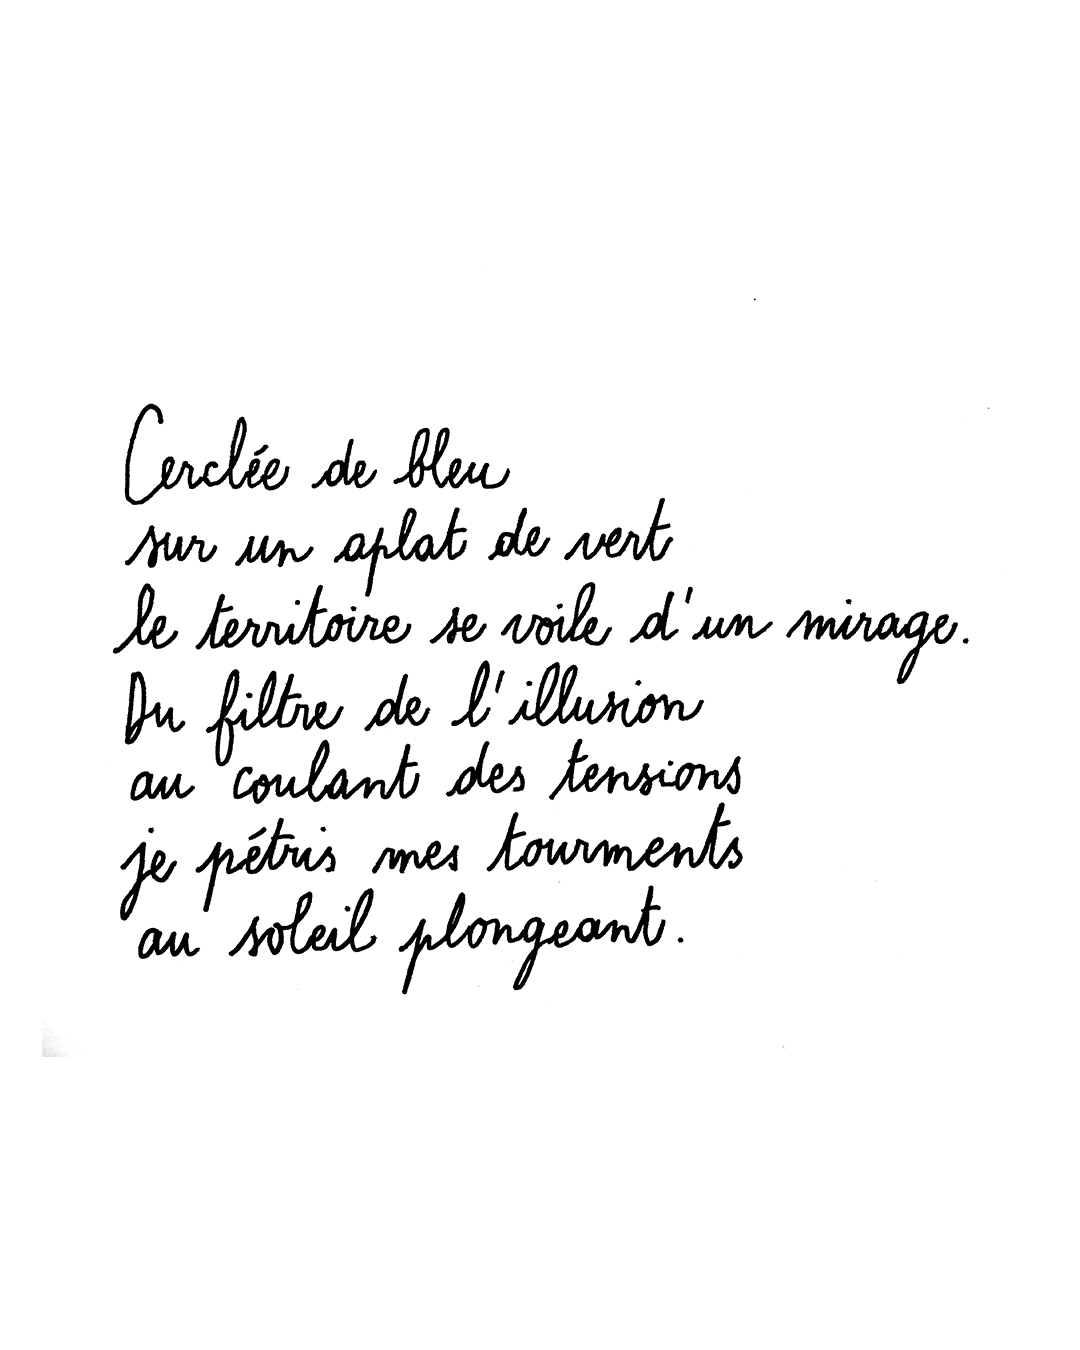 Cerclée de bleu
sur un aplat de vert
le territoire se voile d'un mirage.
Du filtre de l'illusion
au coulant des tensions
je pétris mes tourments
au soleil plongeant.